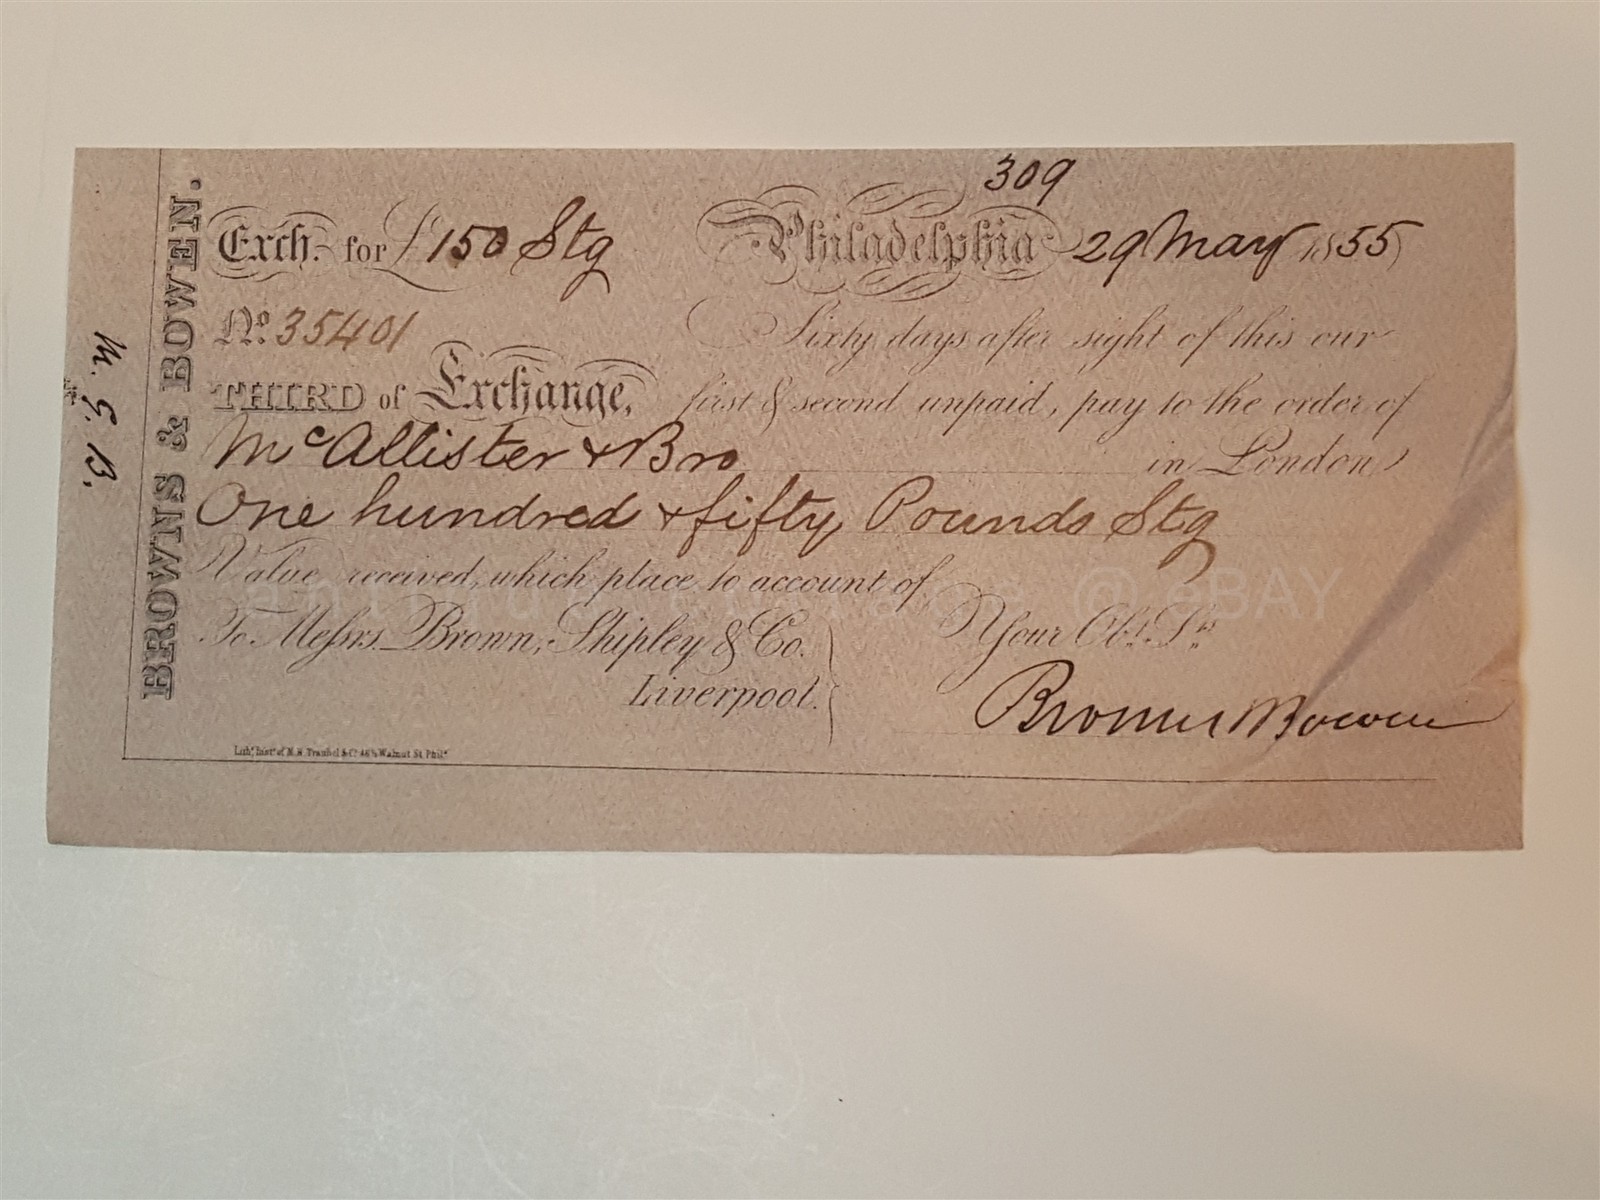 309
Exch. for £150 Stg Philadelphia 29 May 1855
No. 35401 Sixty days after sight of this our
THIRD of Exchange, first & second unpaid, pay to the order of
McAllister & Bro in London
One hundred & fifty Pounds Stg
Value received, which place to account of
@ eBAY
To Messrs. Brown, Shipley & Co. Your Obt. Sts
Liverpool.
Browns & Bowen
Lith. Inst. of M.H. Traubel & Co. 46½ Walnut St Phila
BROWNS & BOWEN.
M. G. B.